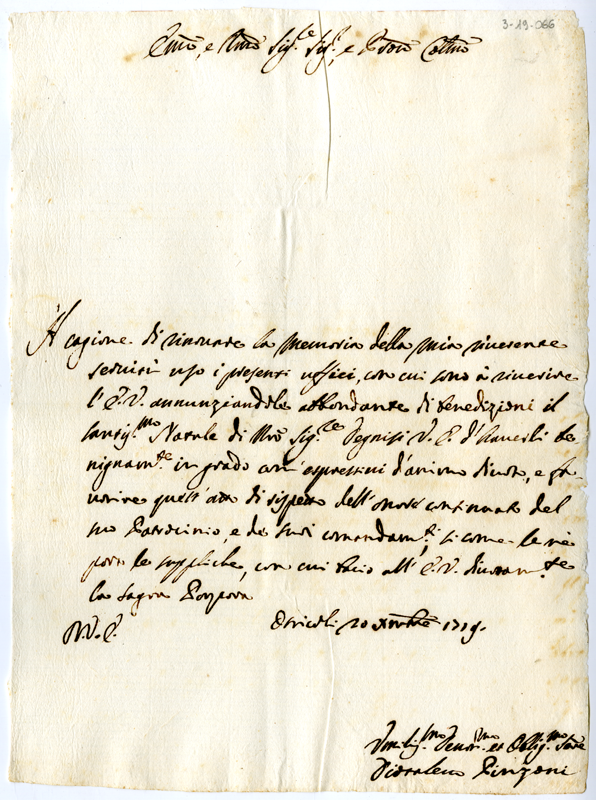 3-19-066
Emõ, e Rmõ Sig.re Sig.re, e Pðne Colmõ
A cagione di rinovare la memoria della mia riverente
servitù uso i presenti uffici, con cui sono à riverire
l'E.V. annunziandole abbondante di benedizioni il
santiss.mo Natale di Nrõ Sig.re Degnisi V.E. d'haverli be
nignam.te in grado com'espressivi d'animo divoto, e fa-
vorire quest'atto di rispetto dell'onor continuato del
suo Patrocinio, e de suoi comandam.ti, si come le ne
porto le suppliche, con cui bacio all'E.V. divotam.te
la sagra Porpora
D.V.E. Otricoli 20 Xmbrẽ 1719.
Umiliss.mo Devot.mo et Oblig.mo Serẽ
Pinzoni